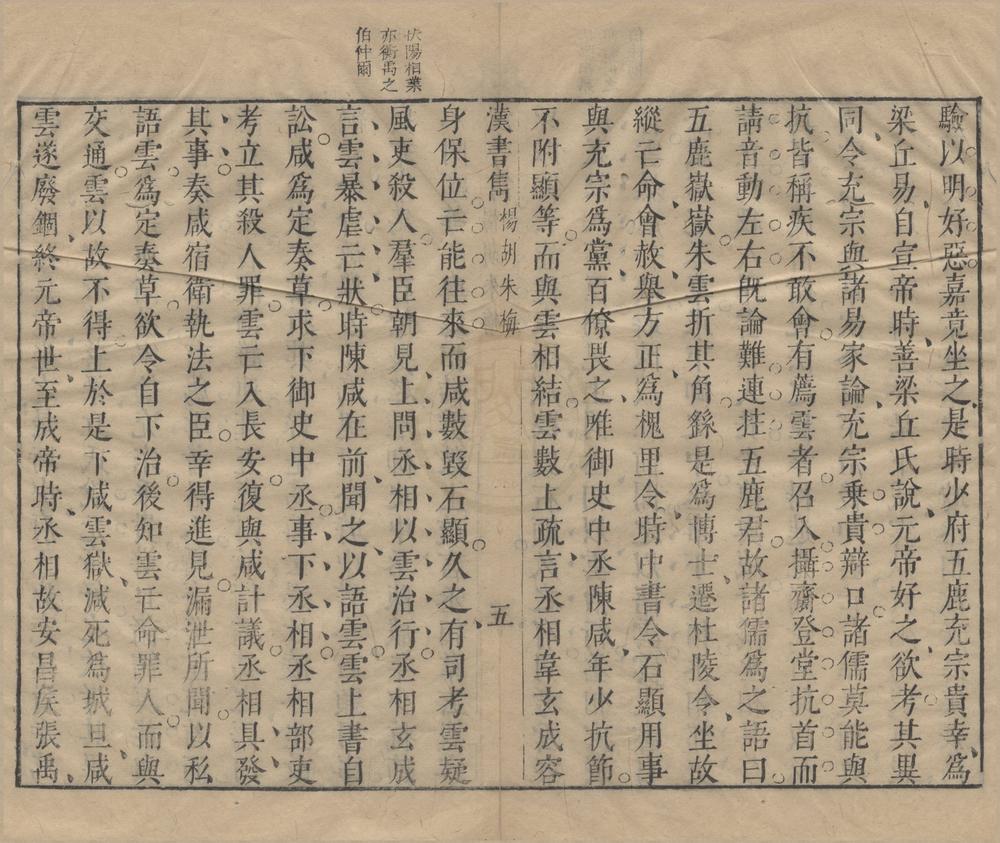 伏陽相業
亦衡禹之
伯仲爾
驗以明好惡嘉竟坐之是時少府五鹿充宗貴幸爲
梁丘易自宣帝時善梁丘氏說元帝好之欲考其異
同令充宗與諸易家論充宗乗貴辯口諸儒莫能與
抗皆稱疾不敢會有薦雲者召入攝齋登堂抗首而
請音動左右旣論難連拄五鹿君故諸儒爲之語曰
五鹿嶽嶽朱雲折其角繇是爲博士遷杜陵令坐故
縱亡命會赦舉方正爲槐里令時中書令石顯用事
與充宗爲黨百僚畏之唯御史中丞陳咸年少抗節
不附顯等而與雲相結雲數上疏言丞相韋玄成容
漢書雋 楊胡朱梅 五
身保位亡能往來而咸數毀石顯久之有司考雲疑
風吏殺人羣臣朝見上問丞相以雲治行丞相玄成
言雲暴虐亡狀時陳咸在前聞之以語雲雲上書自
訟咸爲定奏草求下御史中丞事下丞相丞相部吏
考立其殺人罪雲亡入長安復與咸計議丞相具發
其事奏咸宿衛執法之臣幸得進見漏泄所聞以私
語雲爲定奏草欲令自下治後知雲亡命罪人而與
交通雲以故不得上於是下咸雲獄減死爲城旦咸
雲遂廢錮終元帝世至成帝時丞相故安昌矦張禹